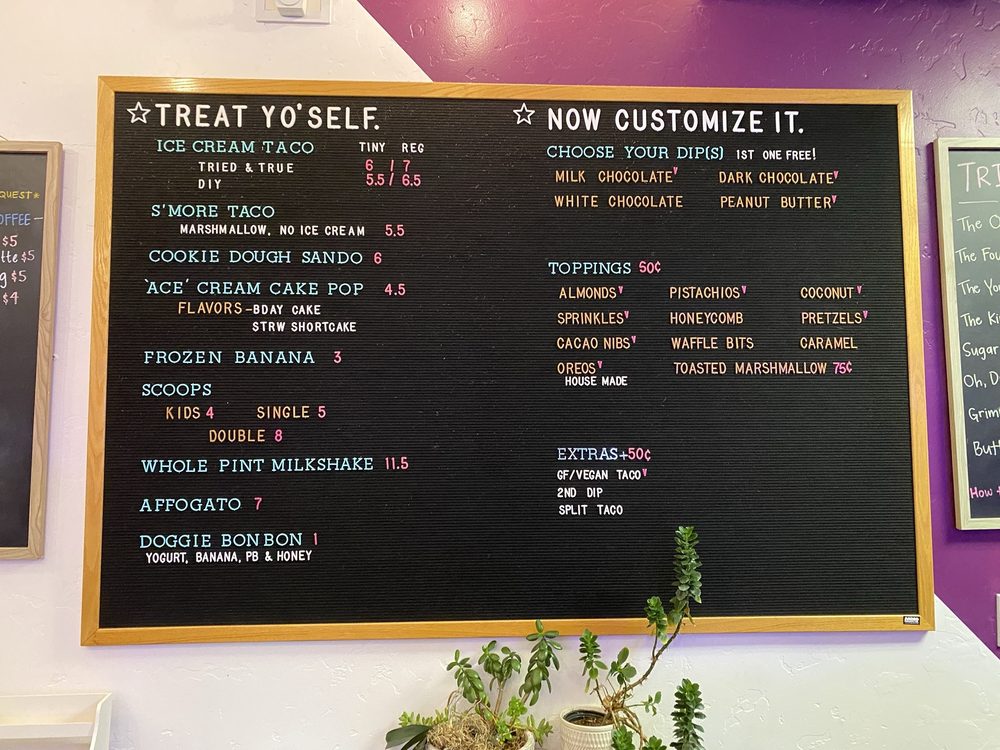 QUEST*
OFFEE-
$5
tte $5
g $5
$4
☆ TREAT YO'SELF.
ICE CREAM TACO TINY REG
TRIED & TRUE 6 / 7
DIY 5.5 / 6.5
S'MORE TACO
MARSHMALLOW, NO ICE CREAM 5.5
COOKIE DOUGH SANDO 6
'ACE' CREAM CAKE POP 4.5
FLAVORS - BDAY CAKE
STRW SHORTCAKE
FROZEN BANANA 3
SCOOPS
KIDS 4 SINGLE 5
DOUBLE 8
WHOLE PINT MILKSHAKE 11.5
AFFOGATO 7
DOGGIE BON BON 1
YOGURT, BANANA, PB & HONEY
☆ NOW CUSTOMIZE IT.
CHOOSE YOUR DIP(S) 1ST ONE FREE!
MILK CHOCOLATE V DARK CHOCOLATE V
WHITE CHOCOLATE PEANUT BUTTER V
TOPPINGS 50¢
ALMONDS V PISTACHIOS V COCONUT V
SPRINKLES V HONEYCOMB PRETZELS V
CACAO NIBS V WAFFLE BITS CARAMEL
OREOS V TOASTED MARSHMALLOW 75¢
HOUSE MADE
EXTRAS+50¢
GF/VEGAN TACO V
2ND DIP
SPLIT TACO
TRI
The O
The Fou
The Yo
The Ki
Sugar
Oh, D
Grim
Butt
How